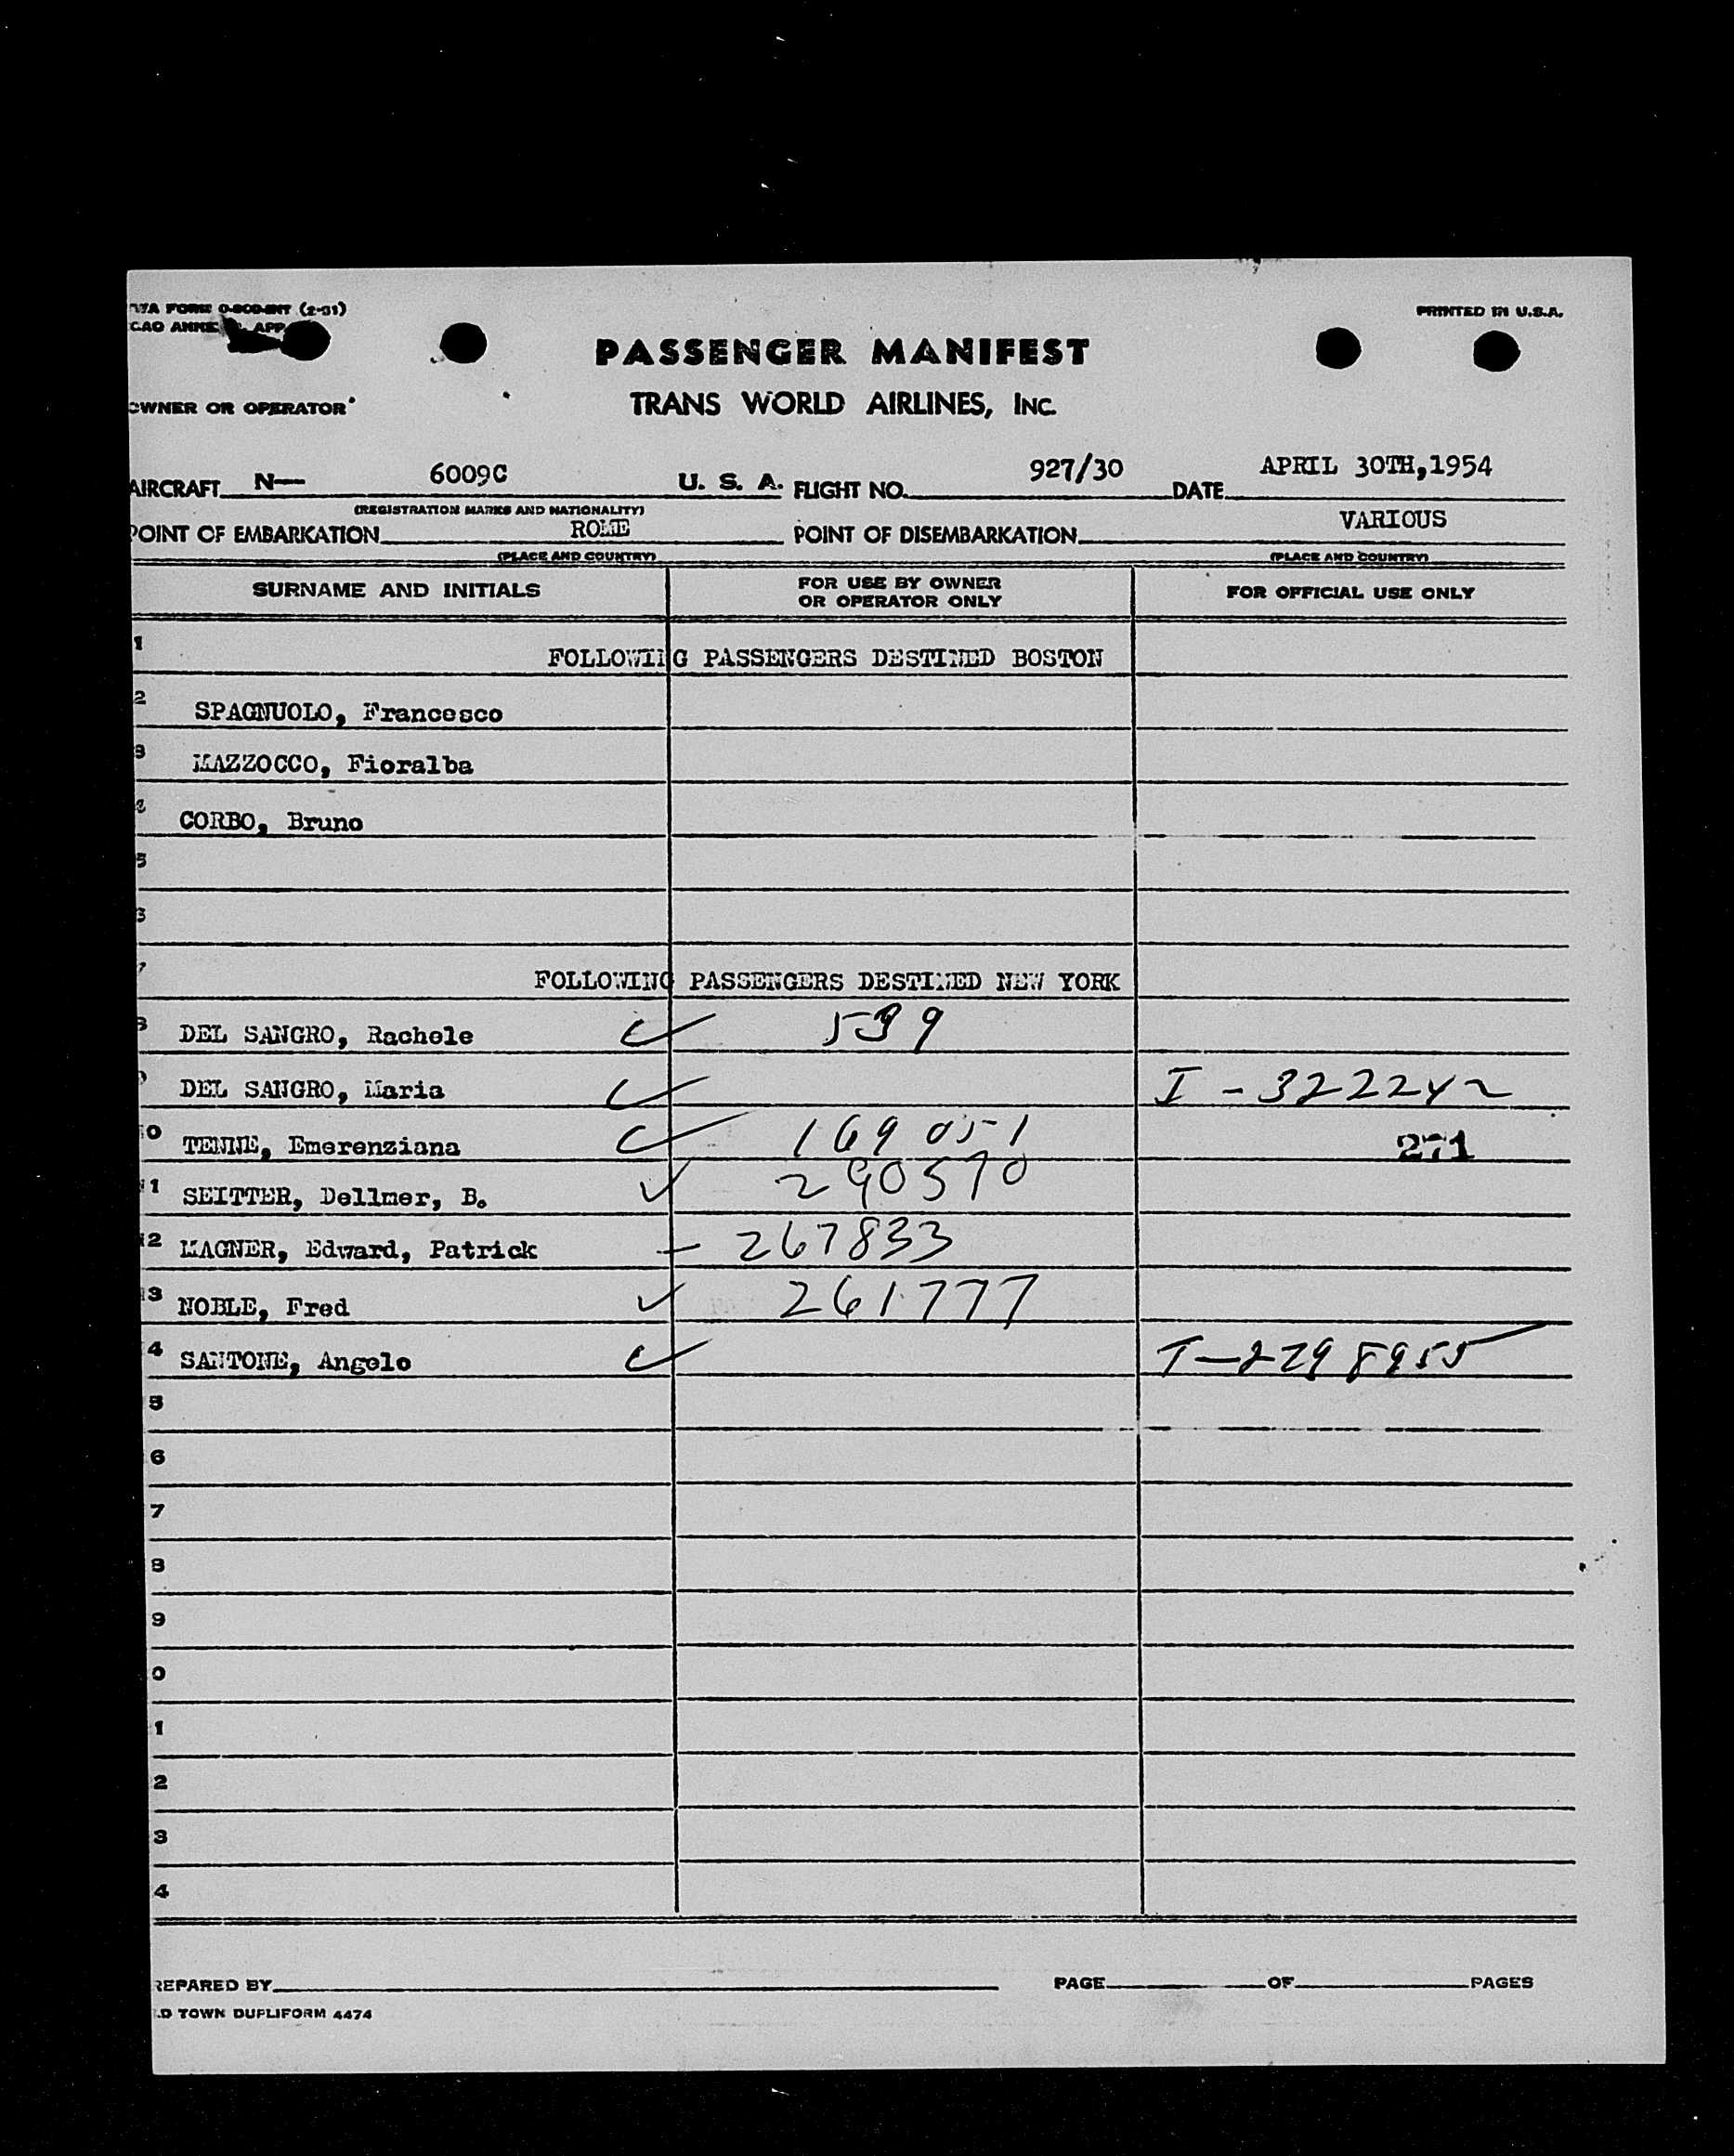 TWA FORM O-800-INT (2-51)
ICAO ANNEX 9, APP.
PRINTED IN U.S.A.
PASSENGER MANIFEST
OWNER OR OPERATOR
TRANS WORLD AIRLINES, INC.
AIRCRAFT N— 6009C U. S. A. FLIGHT NO. 927/30 DATE APRIL 30TH,1954
(REGISTRATION MARKS AND NATIONALITY)
POINT OF EMBARKATION ROME POINT OF DISEMBARKATION VARIOUS
(PLACE AND COUNTRY) (PLACE AND COUNTRY)
SURNAME AND INITIALS FOR USE BY OWNER OR OPERATOR ONLY FOR OFFICIAL USE ONLY
1 FOLLOWING PASSENGERS DESTINED BOSTON
2 SPAGNUOLO, Francesco
3 MAZZOCCO, Fioralba
4 CORBO, Bruno
5
6
7 FOLLOWING PASSENGERS DESTINED NEW YORK
8 DEL SANGRO, Rachele 539
9 DEL SANGRO, Maria I-322242
10 TENNE, Emerenziana 169051 271
11 SEITTER, Dellmer, B. 290570
12 MAGNER, Edward, Patrick - 267833
13 NOBLE, Fred 261777
4 SANTONE, Angelo
5
6
7
8
9
0
1
2
3
4
PREPARED BY PAGE OF PAGES
OLD TOWN DUPLIFORM 4474